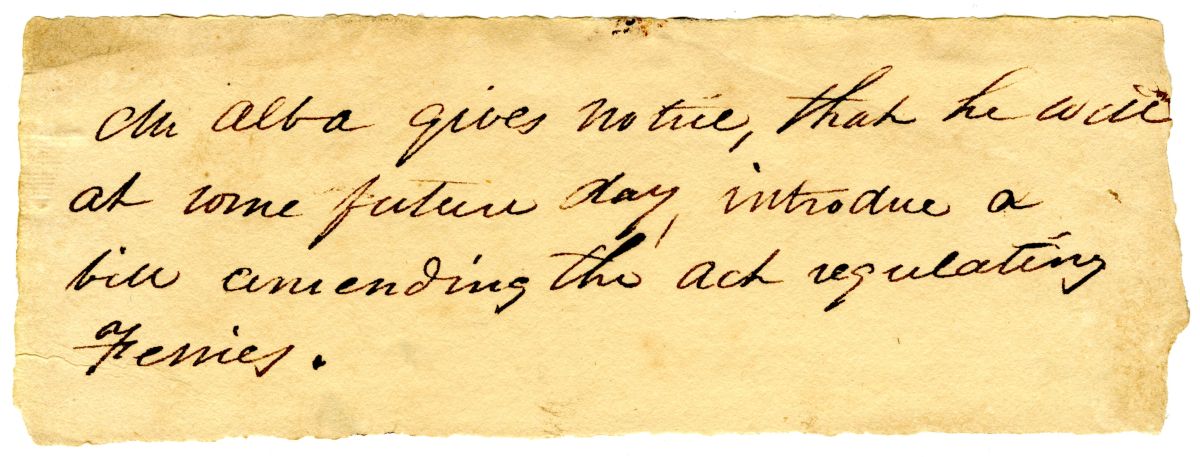 Mr Alba gives notice, that he will
at some future day, introduce a
bill amending the act regulating
Ferries.